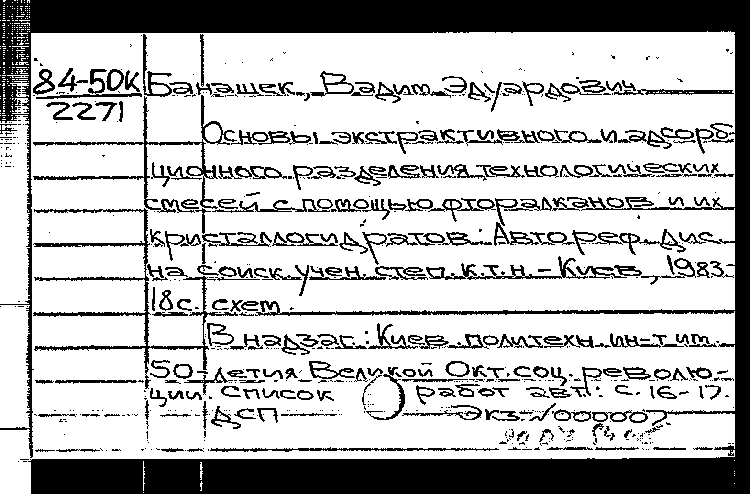 84-50К Банашек, Вадим Эдуардович.
2271
Основы экстрактивного и адсорб-
ционного разделения технологических
смесей с помощью фторалканов и их
кристаллогидратов: Автореф. дис.
на соиск. учен. степ. к.т.н. - Киев, 1983-
18с. схем.
В надзаг.: Киев. политехн. ин-т им.
50-летия Великой Окт. соц. револю-
ции. Список работ авт.: с. 16-17.
ДСП Экз. №000007